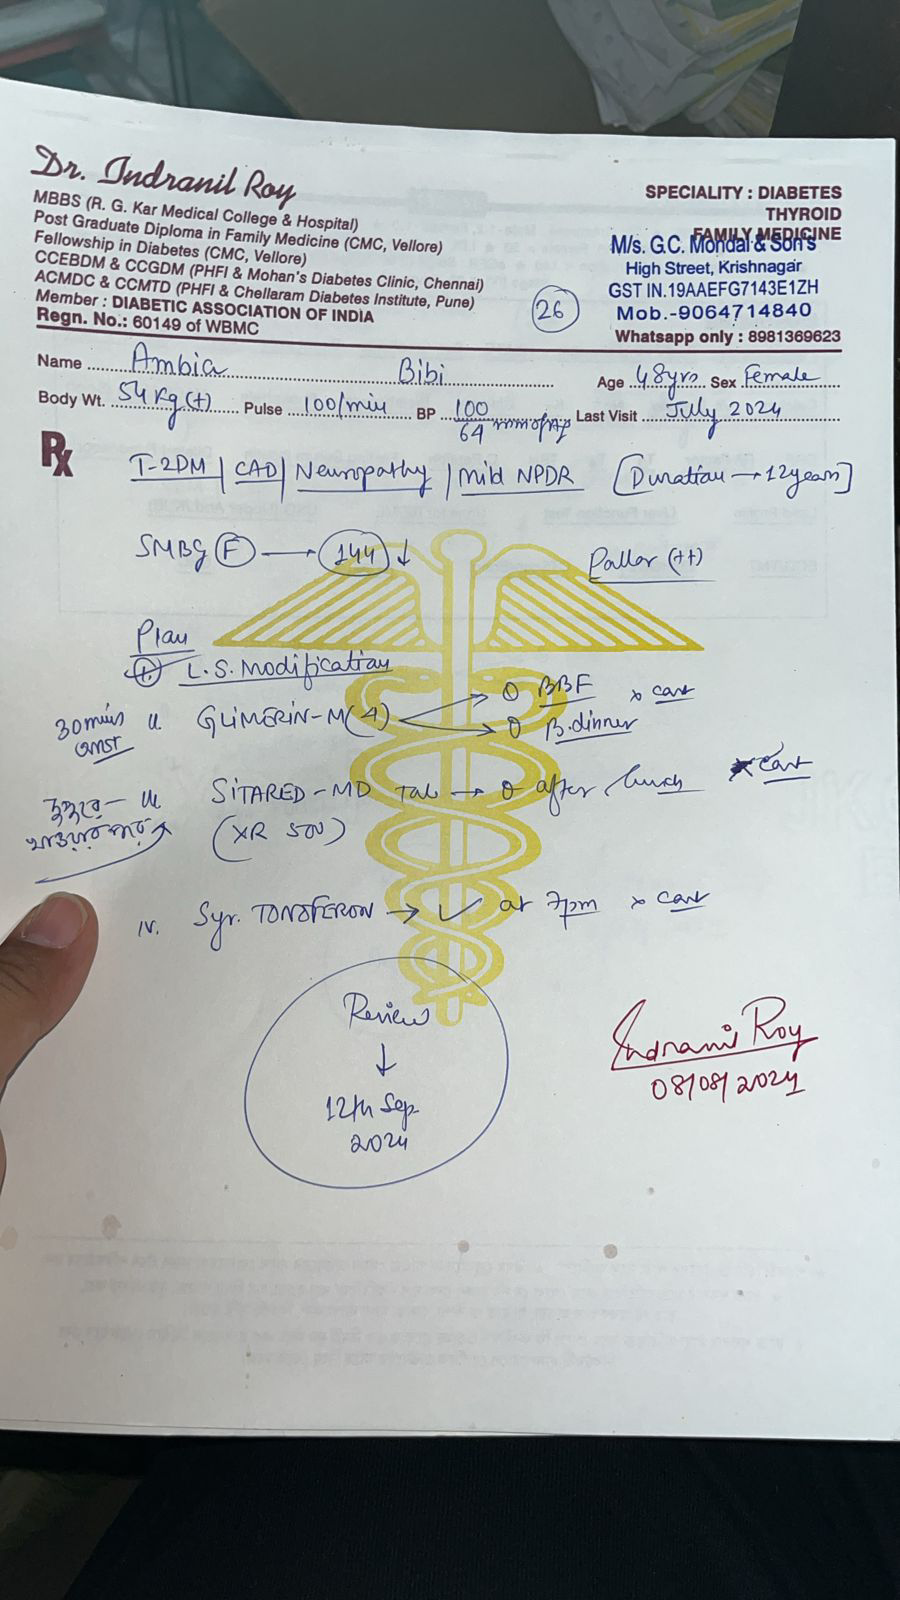 Dr. Indranil Roy
MBBS (R. G. Kar Medical College & Hospital)
Post Graduate Diploma in Family Medicine (CMC, Vellore)
Fellowship in Diabetes (CMC, Vellore)
CCEBDM & CCGDM (PHFI & Mohan's Diabetes Clinic, Chennai)
ACMDC & CCMTD (PHFI & Chellaram Diabetes Institute, Pune)
Member : DIABETIC ASSOCIATION OF INDIA
Regn. No.: 60149 of WBMC
26
SPECIALITY : DIABETES
THYROID
FAMILY MEDICINE
M/s. G.C. Mondal & Son's
High Street, Krishnagar
GST IN.19AAEFG7143E1ZH
Mob.-9064714840
Whatsapp only : 8981369623
Name Ambia Bibi Age 48yrs Sex Female
Body Wt. 54 Kg (+) Pulse 100/min BP 100/64 mmofHg Last Visit July 2024
Rx
T-2DM | CAD | Neuropathy | mild NPDR [Duration → 12years]
SMBG F → 144 ↓
Pallor (++)
Plan
L.S. Modification
30 mins আগে ii. GLIMERIN-M(4) BBF x cont
B.dinner
দুপুরে খাওয়ার পর iii. SITARED-MD Tab → after lunch x cont
(XR 500)
iv. Syr. TONOFERON → ✓ at 7pm x cont
Review
↓
12th Sep
2024
Indranil Roy
08/08/2024